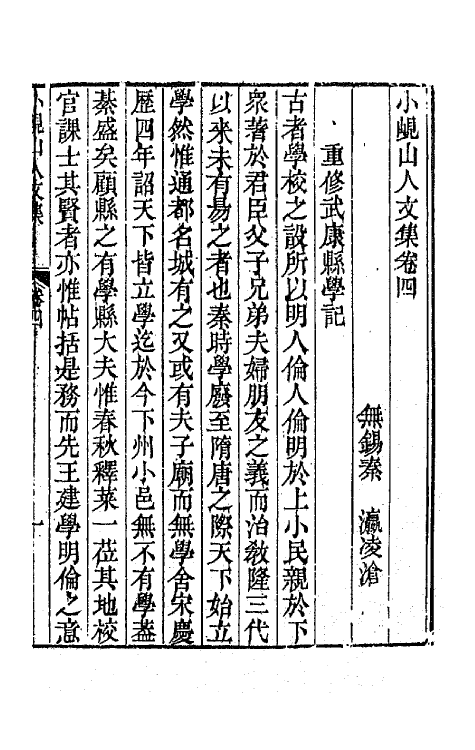 小峴山人文集卷四
無錫秦　瀛淩滄
重修武康縣學記
古者學校之設所以明人倫人倫明於上小民親於下
衆著於君臣父子兄弟夫婦朋友之義而治敎隆三代
以來未有易之者也秦時學廢至隋唐之際天下始立
學然惟通都名城有之又或有夫子廟而無學舍宋慶
歷四年詔天下皆立學迄於今下州小邑無不有學蓋
綦盛矣顧縣之有學縣大夫惟春秋釋菜一蒞其地校
官課士其賢者亦惟帖括是務而先王建學明倫之意
小峴山人文集
卷四
一